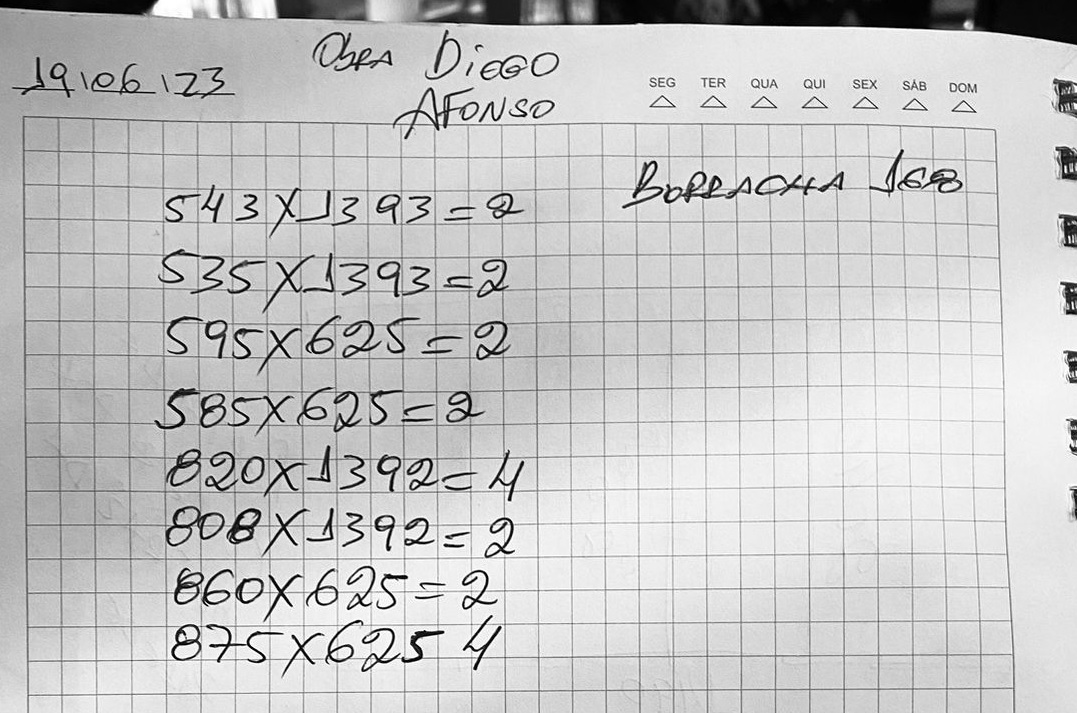 19/06/23
OBRA DIEGO
AFONSO
SEG TER QUA QUI SEX SÁB DOM
BORRACHA 168
543X1393=2
535X1393=2
595X625=2
585X625=2
820X1392=4
808X1392=2
860X625=2
875X625 4